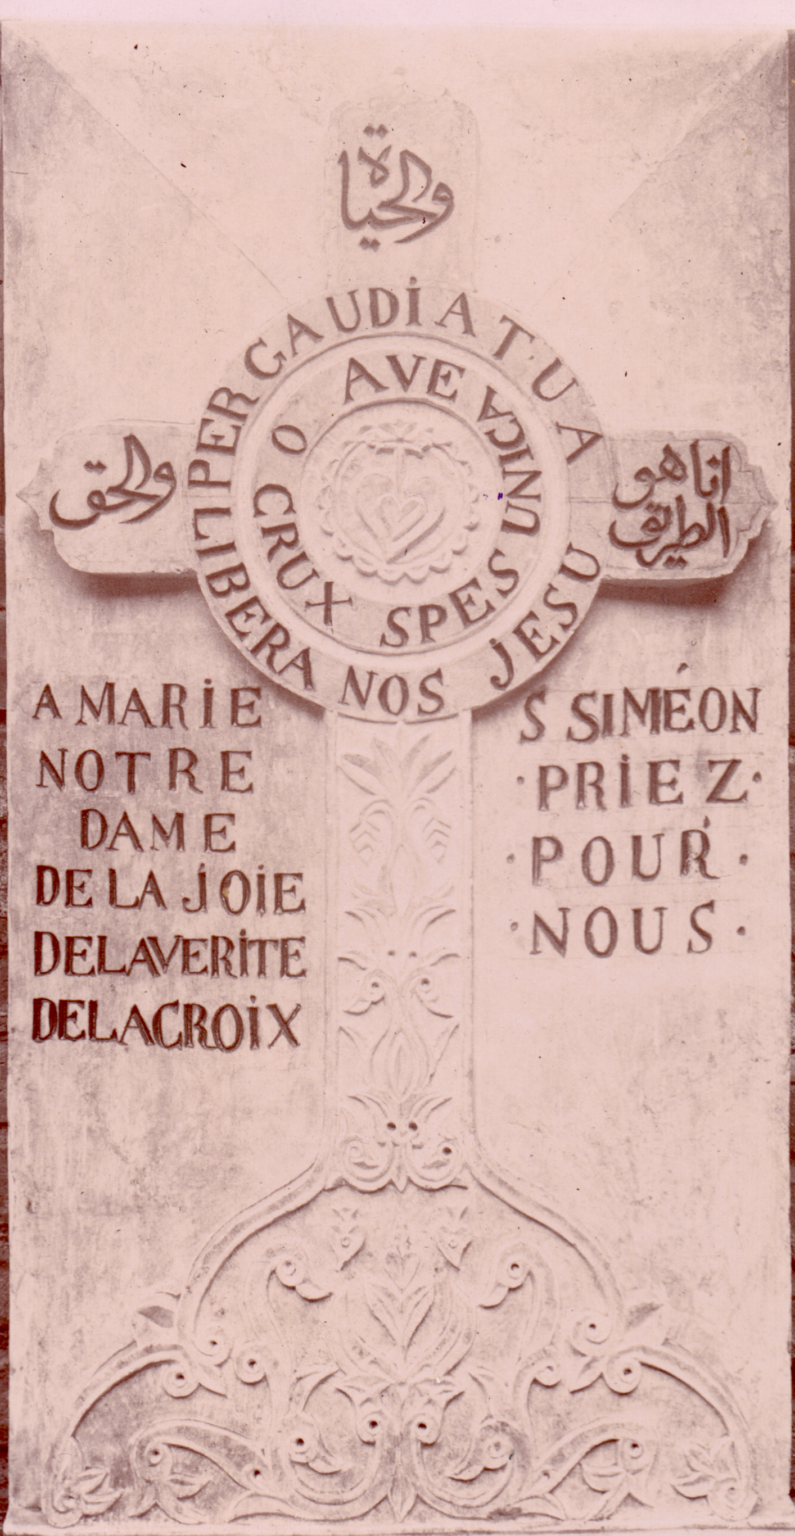 والحياة
انا هو
الطريق
والحق
PER GAUDIA TUA LIBERA NOS JESU
O CRUX AVE SPES UNICA
A MARIE
NOTRE
DAME
DE LA JOIE
DE LA VERITE
DE LA CROIX
S SIMÉON
·PRIEZ·
·POUR·
·NOUS·